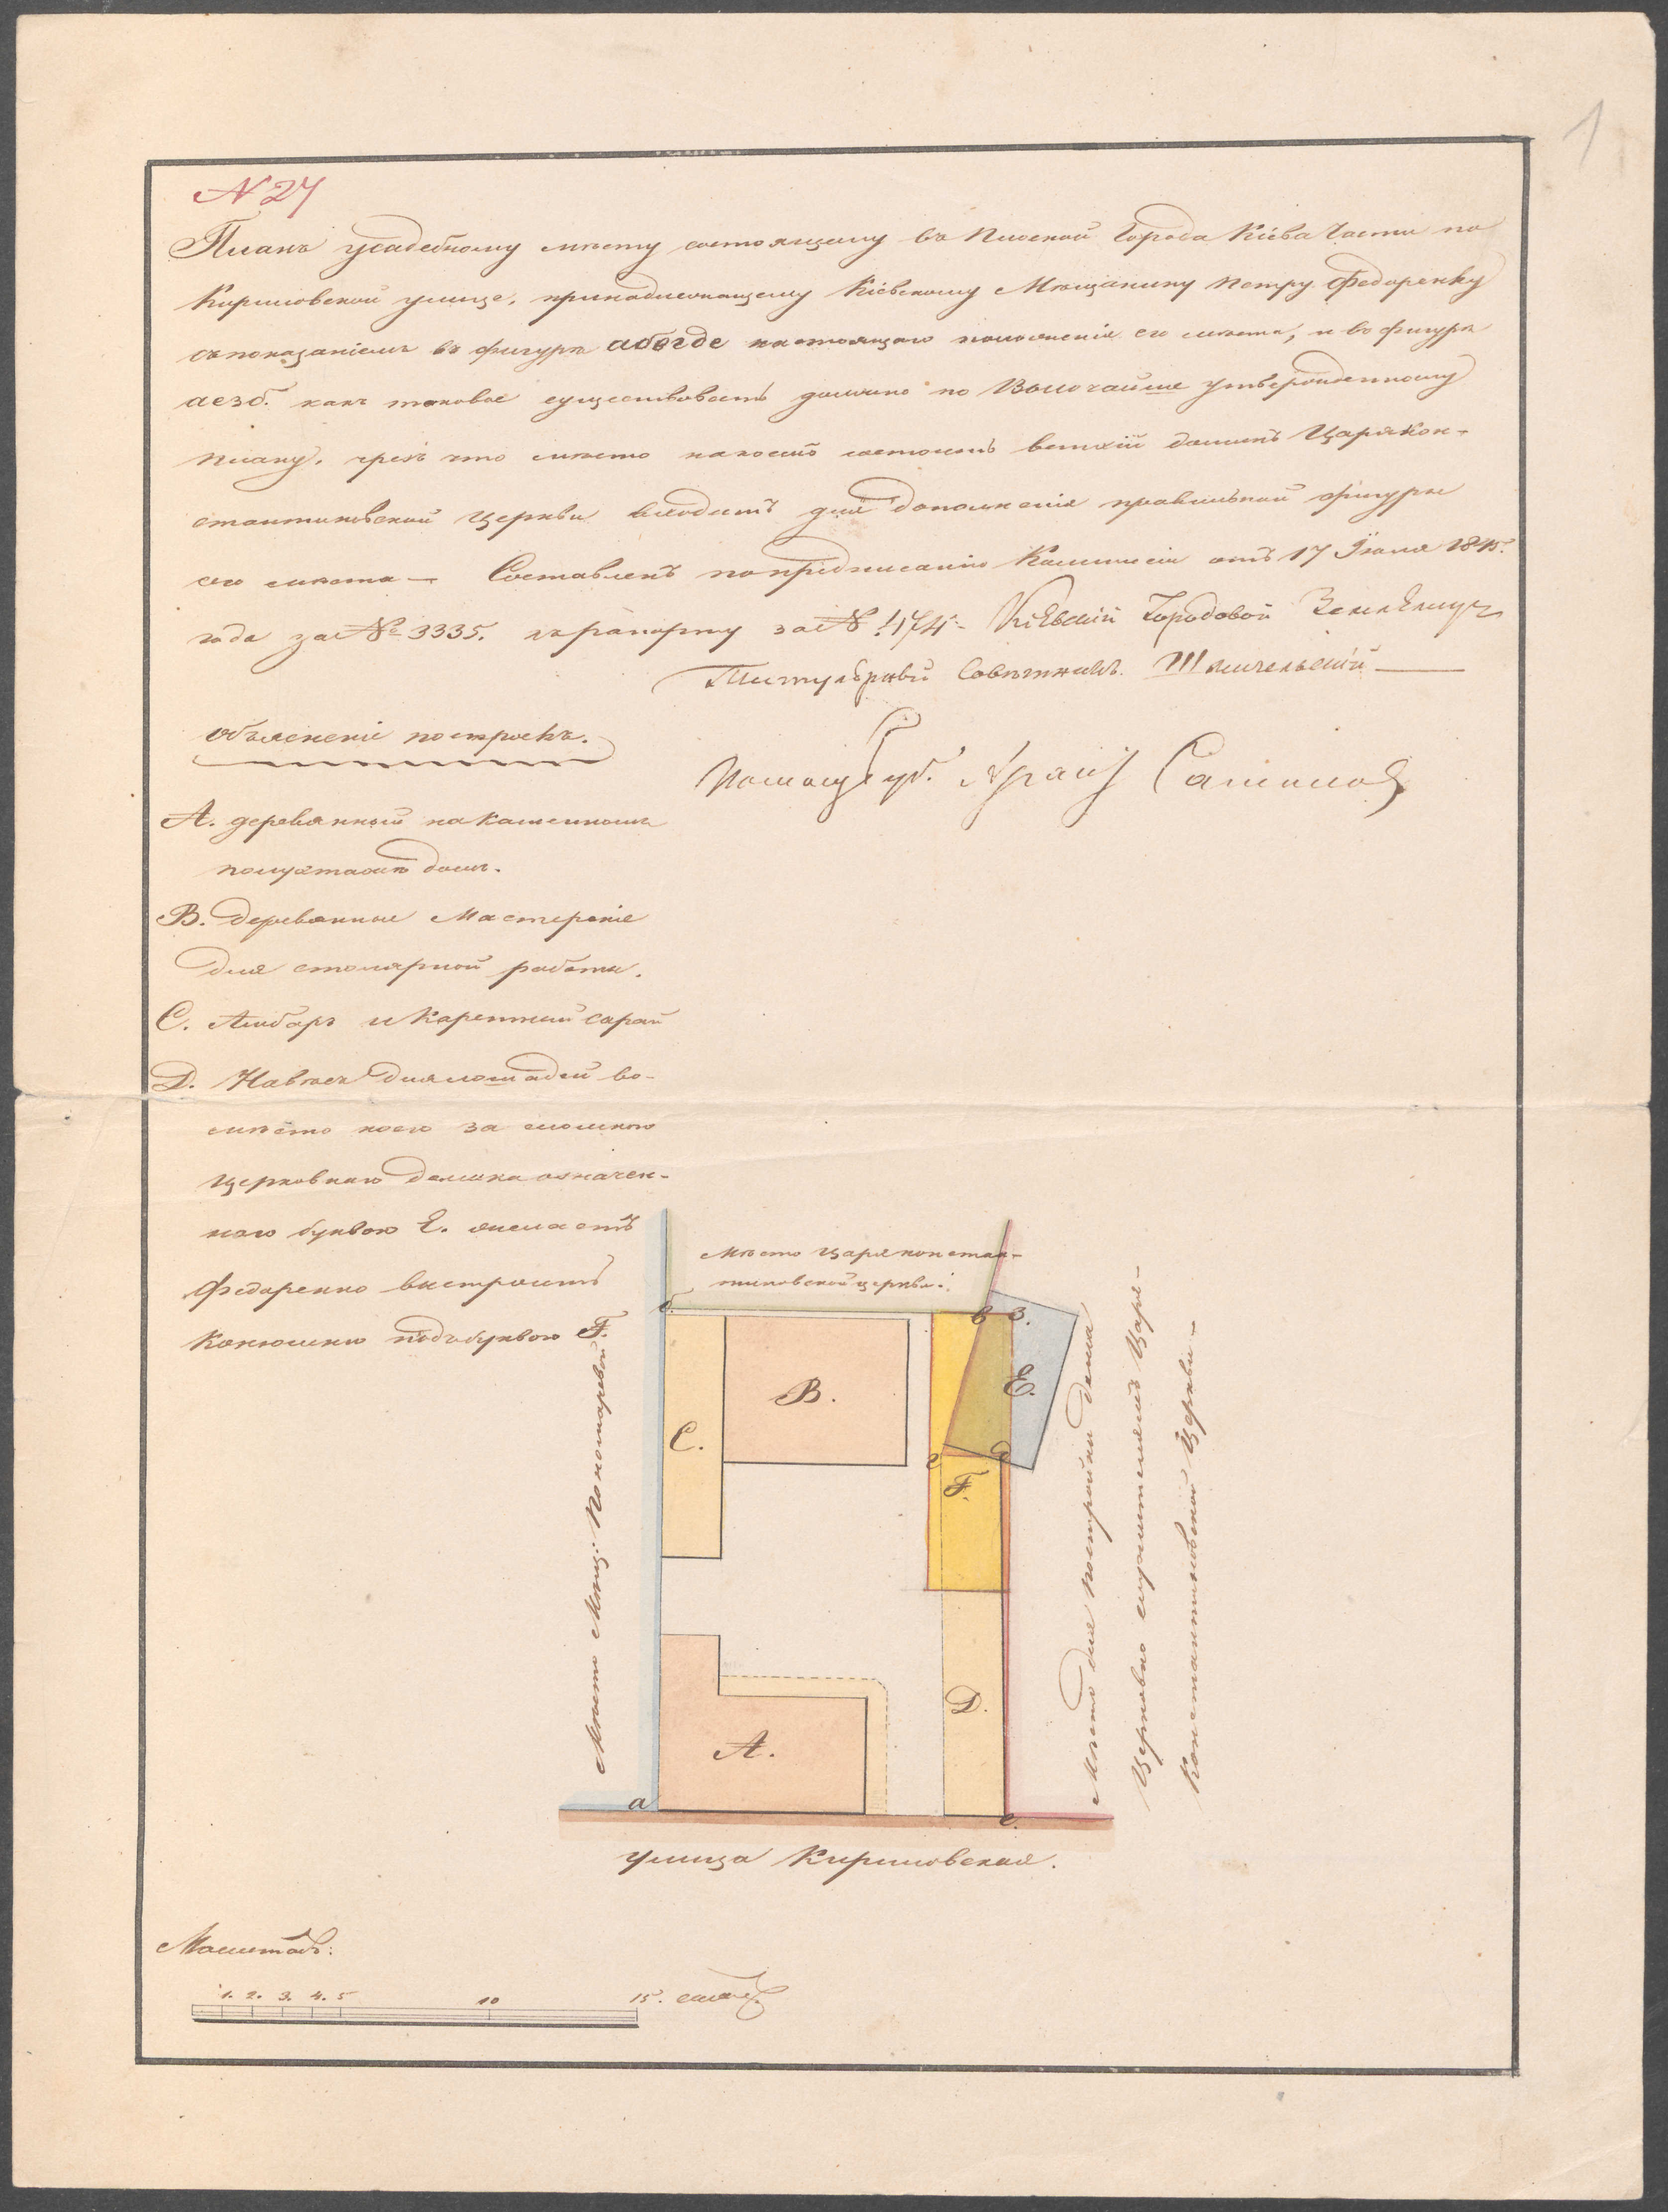 1
N 27
Планъ усадебному мѣсту состоящему въ Плоской Города Кіева Части по
Кириловской улице, принадлежащему Кіевскому Мѣщанину Петру Федоренку
съ показаніемъ въ фигурѣ абвгде настоящаго положенія его мѣста, и въ фигурѣ
аезб. какъ таковое существовать должно по Высочайше утвержденному
плану, чрезъ что мѣсто на коемъ состоитъ ветхій домикъ Царякон-
стантиновской Церкви входитъ для дополненія правильной фигуры
сего мѣста — Составленъ по предписанію Коммисіи отъ 17 Іюля
года за № 3335. къ рапорту за № 174 - Кіевскій Городовой Землемѣръ
Титулярный Совѣтникъ
объясненіе построекъ.
А. деревянный на каменномъ
полуэтажѣ домъ.
В. деревянные Мастерскіе
для столярной работы.
С. Амбаръ и Каретный сарай
D. Навѣсъ для лошадей во-
мѣсто коего за сломкою
церковнаго домика означен-
наго буквою Е. желаетъ
Федоренко выстроить
Конюшню подъ буквою F.
Мѣсто Царяконстан-
тиновской церкви.
б.
в з.
В.
С.
Е.
г д
F.
D.
А.
а
е.
Мѣсто Мѣщ: Пономаревой
Мѣсто для постройки дома
Церковно служителямъ Царе-
Константиновской Церкви —
улица Кириловская.
Масштабъ:
1. 2. 3. 4. 5 10 15. саж.